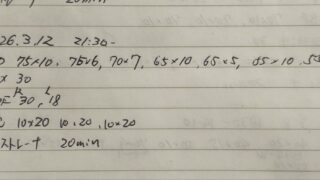 20min
26.3.12 21:30-
75×10, 75×6, 70×7, 65×10, 65×5,
× 30
R 30, L 18
10×20 10,20, 10×20
ストレーナ 20min